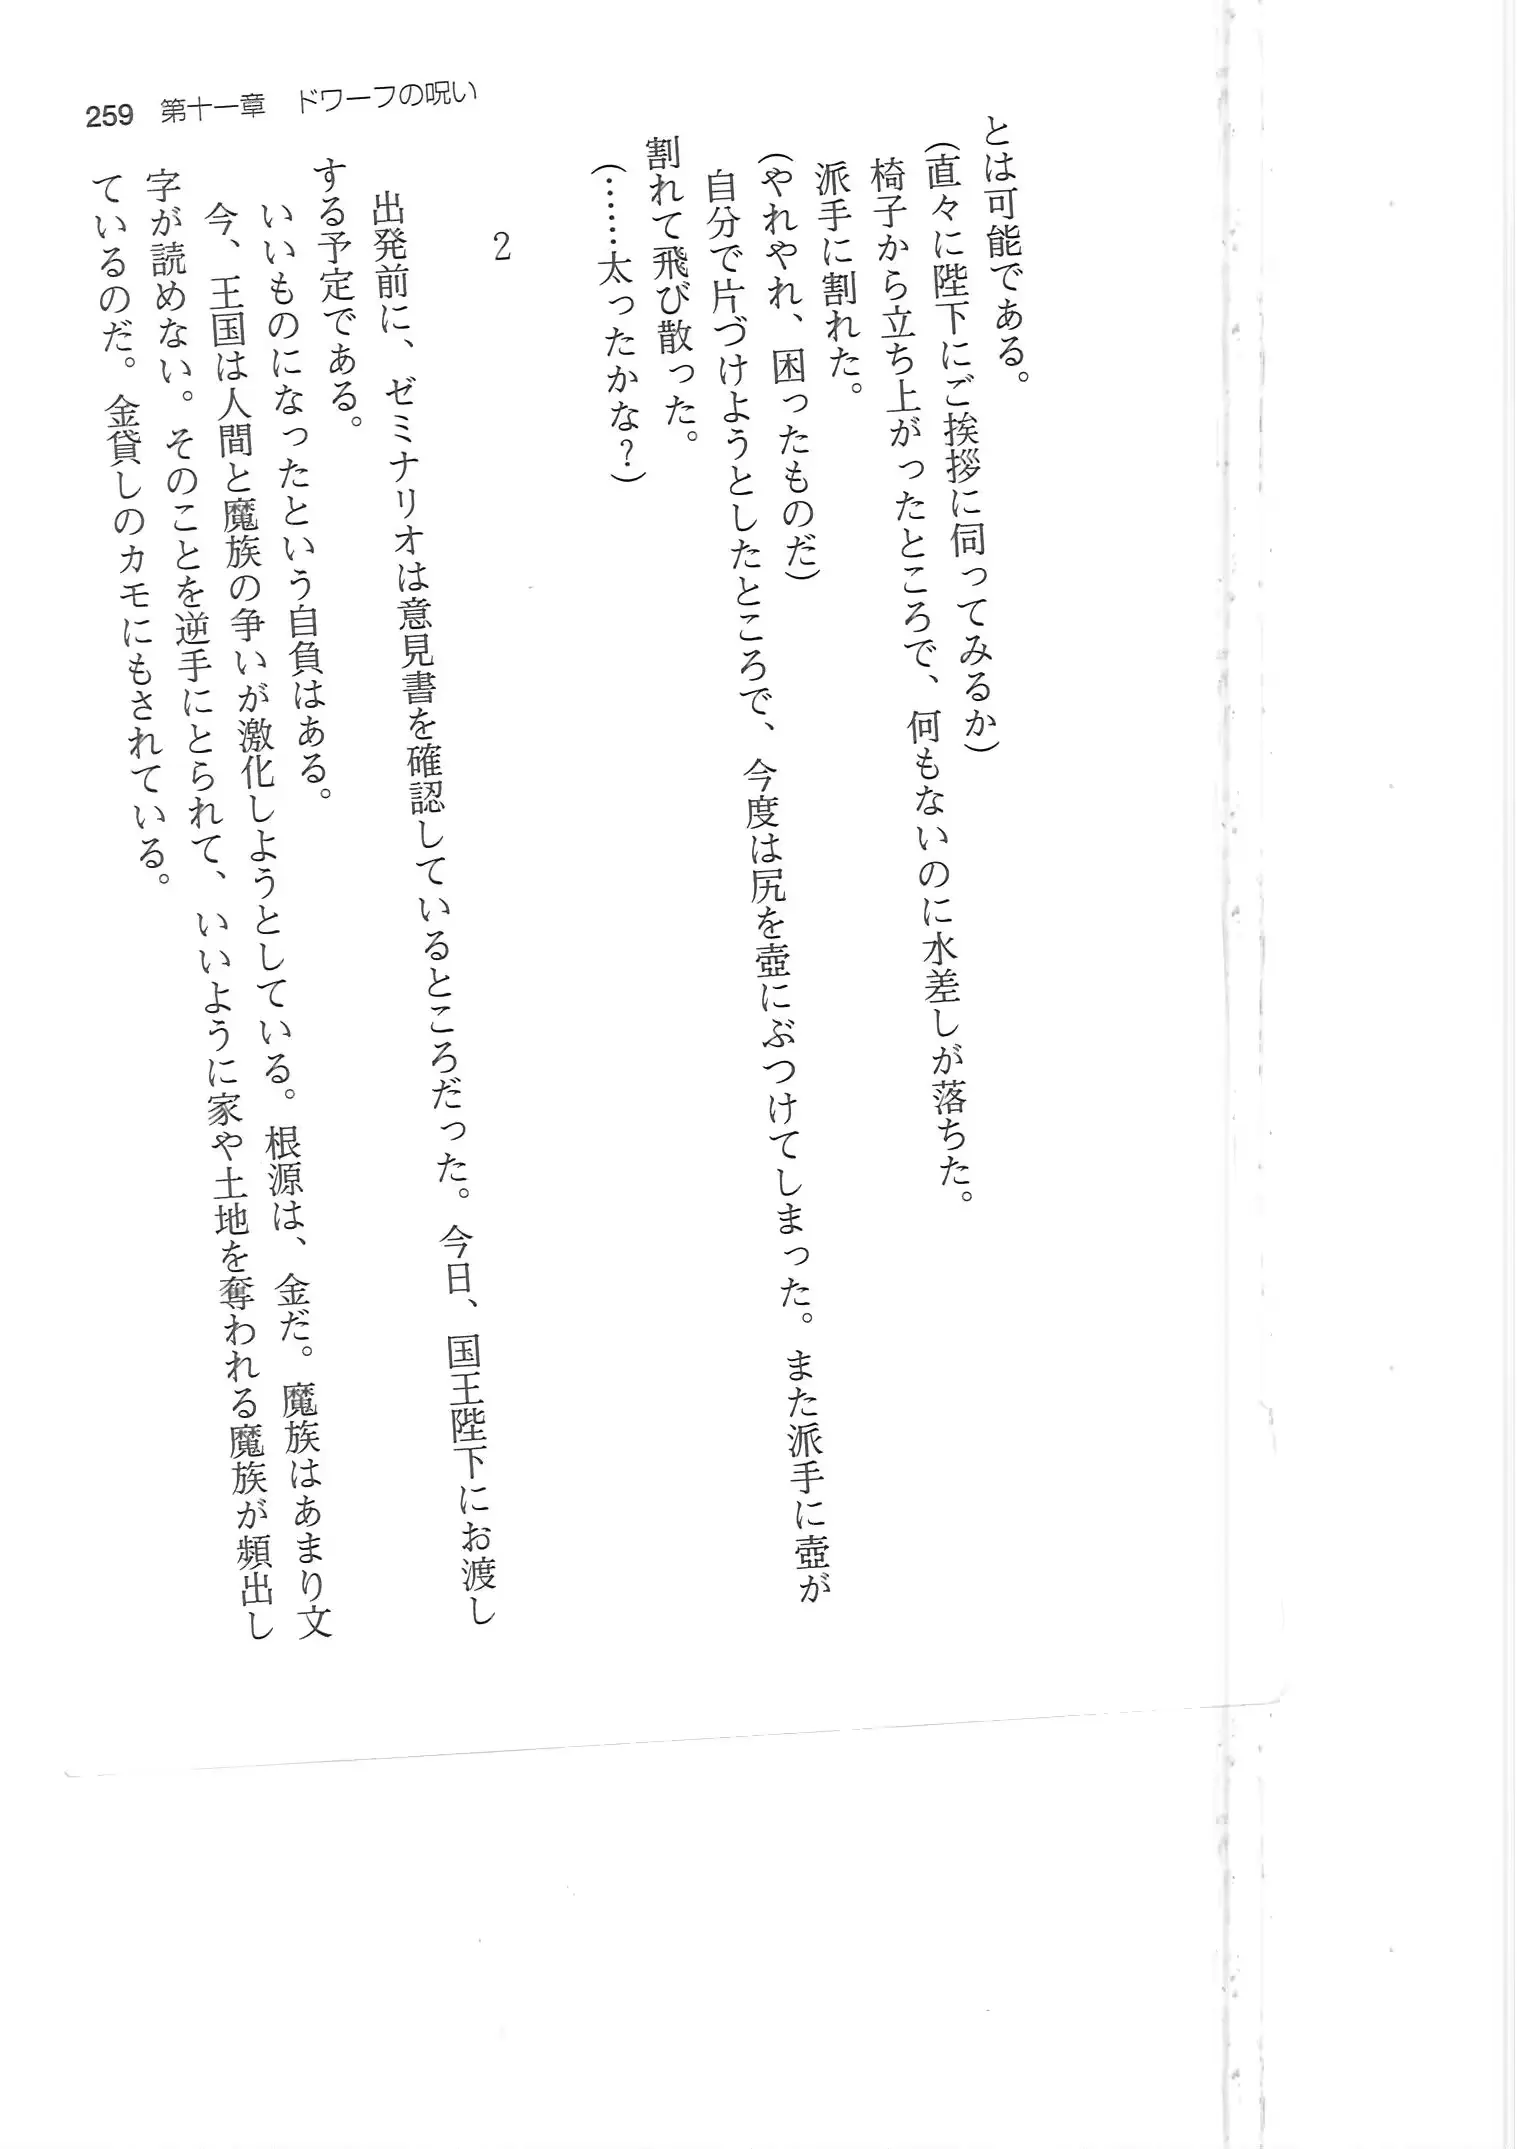 259 第十一章 ドワーフの呪い
とは可能である。
（直々に陛下にご挨拶に伺ってみるか）
椅子から立ち上がったところで、何もないのに水差しが落ちた。
派手に割れた。
（やれやれ、困ったものだ）
自分で片づけようとしたところで、今度は尻を壺にぶつけてしまった。また派手に壺が
割れて飛び散った。
（……太ったかな？）
2
出発前に、ゼミナリオは意見書を確認しているところだった。今日、国王陛下にお渡し
する予定である。
いいものになったという自負はある。
今、王国は人間と魔族の争いが激化しようとしている。根源は、金だ。魔族はあまり文
字が読めない。そのことを逆手にとられて、いいように家や土地を奪われる魔族が頻出し
ているのだ。金貸しのカモにもされている。